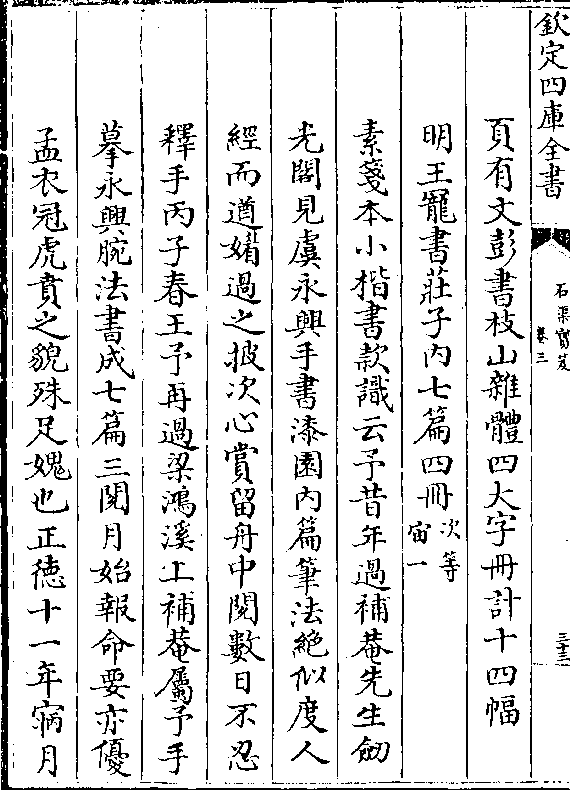 欽定四庫全書
石渠寶笈
卷三
三十三
頁有文彭書枝山雜體四大字冊計十四幅
明王寵書莊子內七篇四冊次等宙一
素箋本小楷書款識云予昔年過補菴先生劒
光閣見虞永興手書漆園內篇筆法絕似度人
經而遒媚過之披次心賞留舟中閱數日不忍
釋手丙子春王予再過梁鴻溪上補菴屬予手
摹永興腕法書成七篇三閱月始報命要亦優
孟衣冠虎賁之貌殊足媿也正德十一年寎月